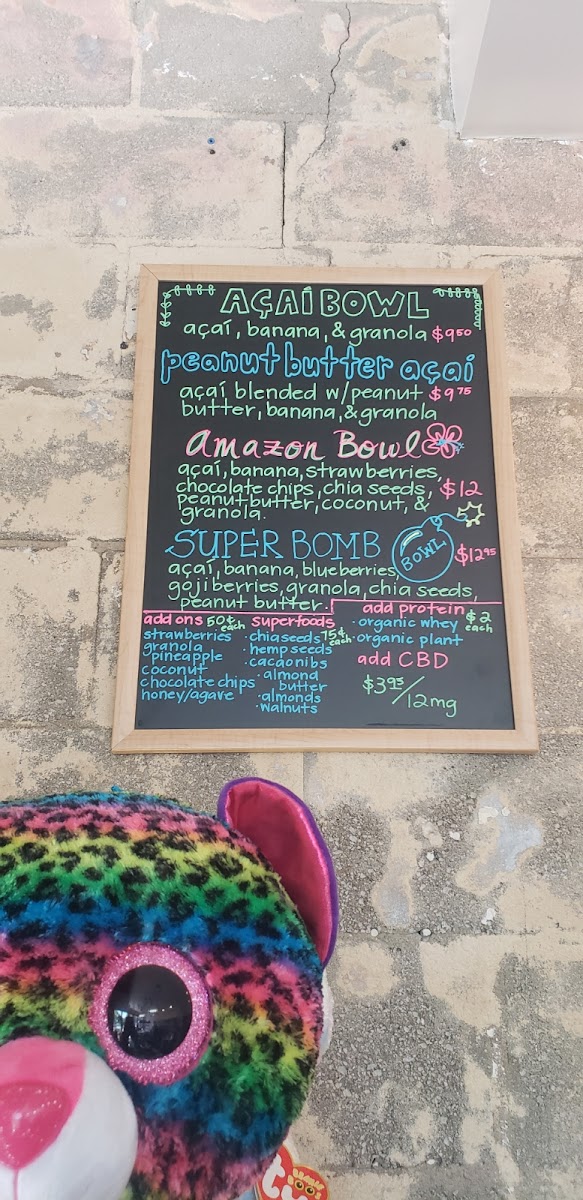 AÇAÍ BOWL
açaí, banana, & granola $9.50
peanut butter açaí
açaí blended w/peanut $9.75
butter, banana, & granola
Amazon Bowl
açaí, banana, strawberries,
chocolate chips, chia seeds, $12
peanut butter, coconut, &
granola.
SUPER BOMB BOWL
açaí, banana, blueberries, $12.95
goji berries, granola, chia seeds,
peanut butter.
add ons 50¢ each
strawberries
granola
pineapple
coconut
chocolate chips
honey/agave
superfoods
75¢ each
·chia seeds
·hemp seeds
·cacao nibs
·almond
butter
·almonds
·walnuts
add protein
$2 each
·organic whey
·organic plant
add CBD
$3.95/12mg
ty